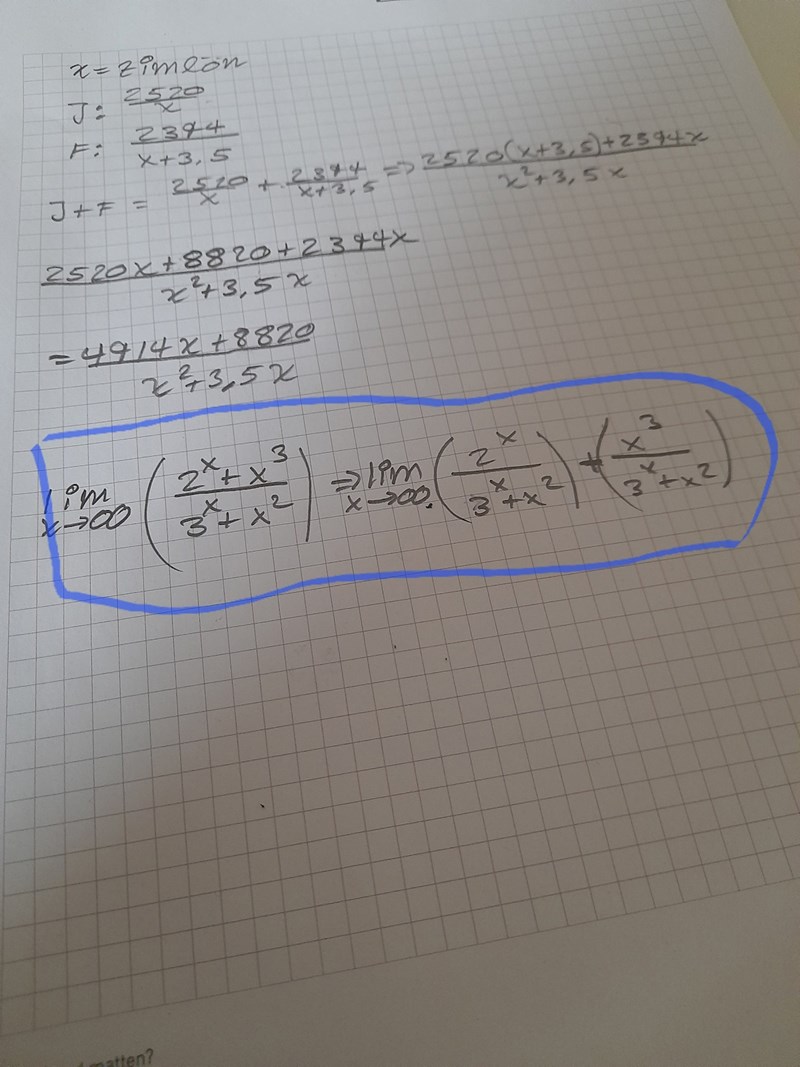 x = timlön
J: 2520/x
F: 2394/(x+3,5)
J+F = 2520/x + 2394/(x+3,5) => (2520(x+3,5)+2394x)/(x²+3,5x)
(2520x+8820+2394x)/(x²+3,5x)
= (4914x+8820)/(x²+3,5x)
lim x→∞ ((2^x + x³)/(3^x + x²)) => lim x→∞. (2^x/(3^x + x²)) + (x³/(3^x + x²))
matten?